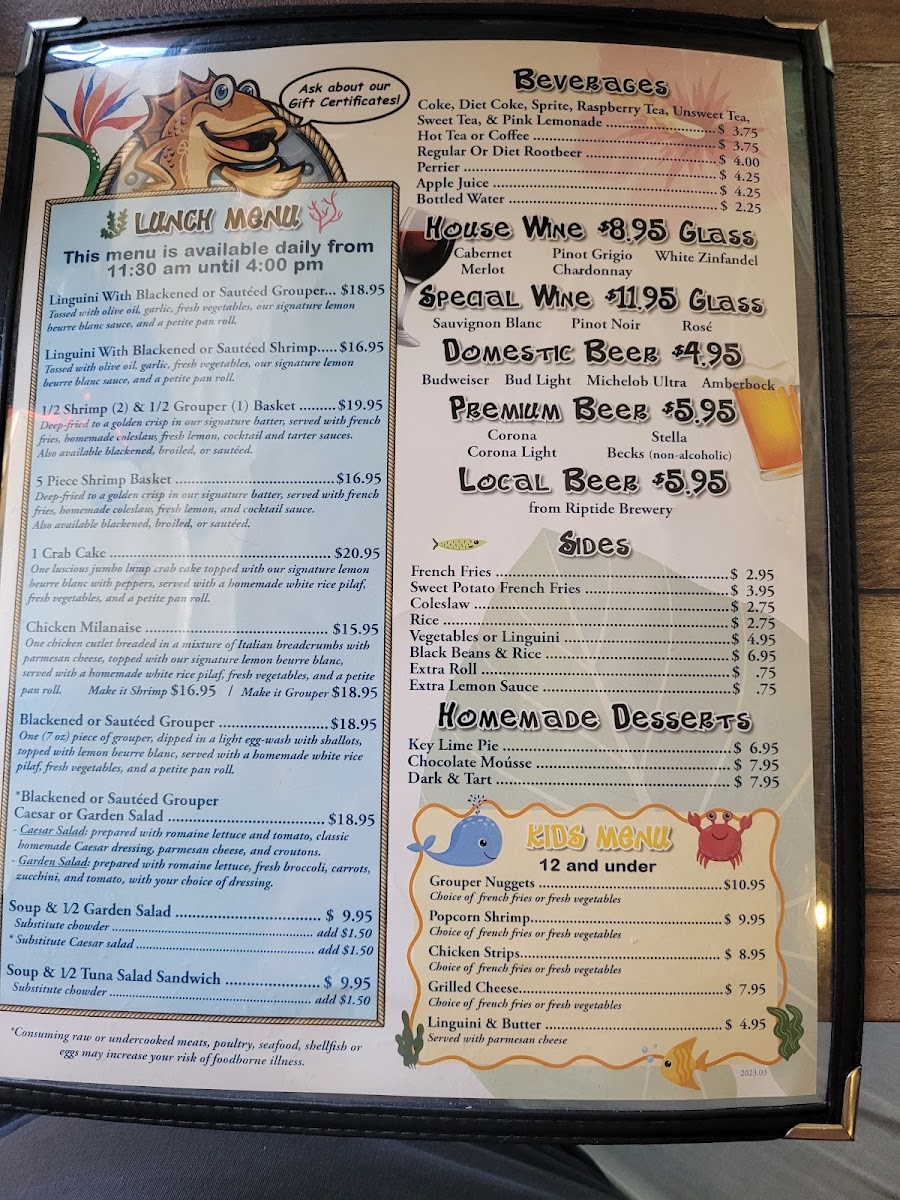 Ask about our
Gift Certificates!
LUNCH MENU
This menu is available daily from
11:30 am until 4:00 pm
Linguini With Blackened or Sautéed Grouper... $18.95
Tossed with olive oil, garlic, fresh vegetables, our signature lemon
beurre blanc sauce, and a petite pan roll.
Linguini With Blackened or Sautéed Shrimp..... $16.95
Tossed with olive oil, garlic, fresh vegetables, our signature lemon
beurre blanc sauce, and a petite pan roll.
1/2 Shrimp (2) & 1/2 Grouper (1) Basket ......... $19.95
Deep-fried to a golden crisp in our signature batter, served with french
fries, homemade coleslaw, fresh lemon, cocktail and tarter sauces.
Also available blackened, broiled, or sautéed.
5 Piece Shrimp Basket ..................................... $16.95
Deep-fried to a golden crisp in our signature batter, served with french
fries, homemade coleslaw, fresh lemon, and cocktail sauce.
Also available blackened, broiled, or sautéed.
1 Crab Cake .................................................... $20.95
One luscious jumbo lump crab cake topped with our signature lemon
beurre blanc with peppers, served with a homemade white rice pilaf,
fresh vegetables, and a petite pan roll.
Chicken Milanaise ........................................... $15.95
One chicken cutlet breaded in a mixture of Italian breadcrumbs with
parmesan cheese, topped with our signature lemon beurre blanc,
served with a homemade white rice pilaf, fresh vegetables, and a petite
pan roll. Make it Shrimp $16.95 / Make it Grouper $18.95
Blackened or Sautéed Grouper ......................... $18.95
One (7 oz) piece of grouper, dipped in a light egg-wash with shallots,
topped with lemon beurre blanc, served with a homemade white rice
pilaf, fresh vegetables, and a petite pan roll.
*Blackened or Sautéed Grouper
Caesar or Garden Salad ..................................... $18.95
- Caesar Salad: prepared with romaine lettuce and tomato, classic
homemade Caesar dressing, parmesan cheese, and croutons.
- Garden Salad: prepared with romaine lettuce, fresh broccoli, carrots,
zucchini, and tomato, with your choice of dressing.
Soup & 1/2 Garden Salad ................................. $ 9.95
Substitute chowder ..................................................... add $1.50
* Substitute Caesar salad ............................................. add $1.50
Soup & 1/2 Tuna Salad Sandwich ..................... $ 9.95
Substitute chowder ..................................................... add $1.50
*Consuming raw or undercooked meats, poultry, seafood, shellfish or
eggs may increase your risk of foodborne illness.
Beverages
Coke, Diet Coke, Sprite, Raspberry Tea, Unsweet Tea,
Sweet Tea, & Pink Lemonade ............................ $ 3.75
Hot Tea or Coffee ............................................. $ 3.75
Regular Or Diet Rootbeer ................................. $ 4.00
Perrier .............................................................. $ 4.25
Apple Juice ....................................................... $ 4.25
Bottled Water ................................................... $ 2.25
House Wine $8.95 Glass
Cabernet Pinot Grigio White Zinfandel
Merlot Chardonnay
Special Wine $11.95 Glass
Sauvignon Blanc Pinot Noir Rosé
Domestic Beer $4.95
Budweiser Bud Light Michelob Ultra Amberbock
Premium Beer $5.95
Corona Stella
Corona Light Becks (non-alcoholic)
Local Beer $5.95
from Riptide Brewery
Sides
French Fries ....................................................... $ 2.95
Sweet Potato French Fries .................................. $ 3.95
Coleslaw ............................................................ $ 2.75
Rice ................................................................... $ 2.75
Vegetables or Linguini ....................................... $ 4.95
Black Beans & Rice ............................................ $ 6.95
Extra Roll .......................................................... $ .75
Extra Lemon Sauce ............................................ $ .75
Homemade Desserts
Key Lime Pie ..................................................... $ 6.95
Chocolate Moússe .............................................. $ 7.95
Dark & Tart ....................................................... $ 7.95
KIDS MENU
12 and under
Grouper Nuggets .......................................... $10.95
Choice of french fries or fresh vegetables
Popcorn Shrimp............................................ $ 9.95
Choice of french fries or fresh vegetables
Chicken Strips............................................... $ 8.95
Choice of french fries or fresh vegetables
Grilled Cheese............................................... $ 7.95
Choice of french fries or fresh vegetables
Linguini & Butter ......................................... $ 4.95
Served with parmesan cheese
2023.03